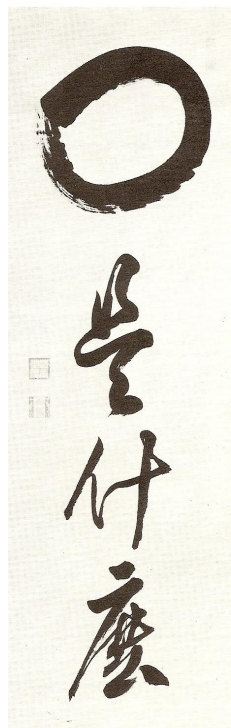 是什麼